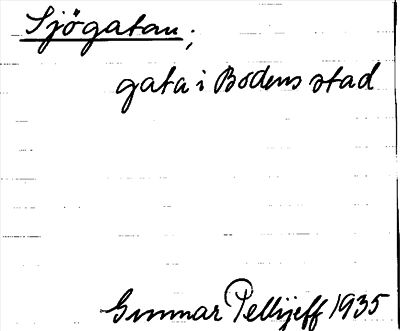 Sjögatan;
gata i Bodens stad
Gunnar Pellijeff 1935